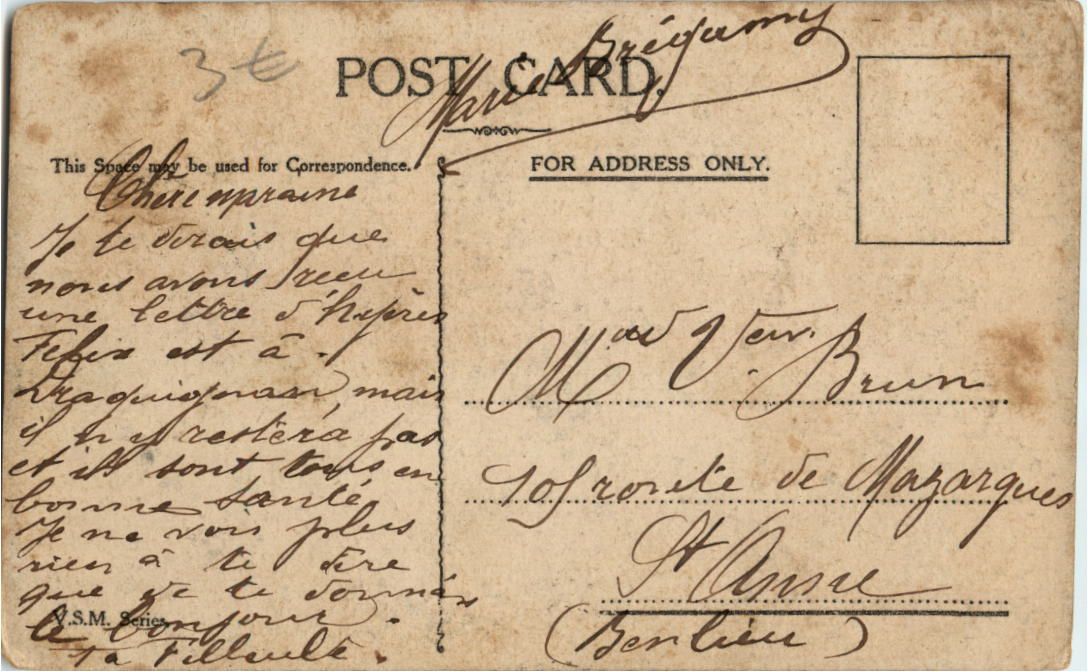 3 €
POST CARD.
Marie
This Space may be used for Correspondence.
FOR ADDRESS ONLY.
Chère mpraine
Je te dirais que
nous avons recu
une lettre d'hyères
Felix est à
Draguignan mais
il n'y restera pas
et ils sont tous en
bonne santé
Je ne vois plus
rien à te dire
que de te donner
le bonjour.
ta Filleule.
V.S.M. Series.
Veuv.
Brun
route de Mazargues
St Anne
(Benlieu)